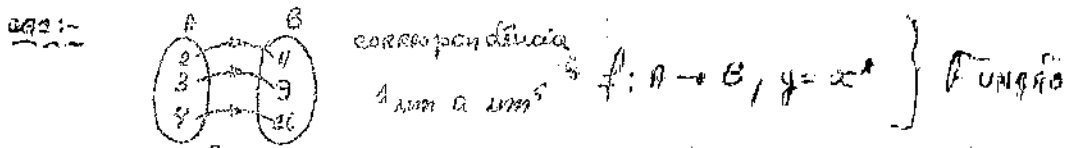 A B
2 4
3 9
correspondência
"um a um"
f: A → B, y = x
} Função